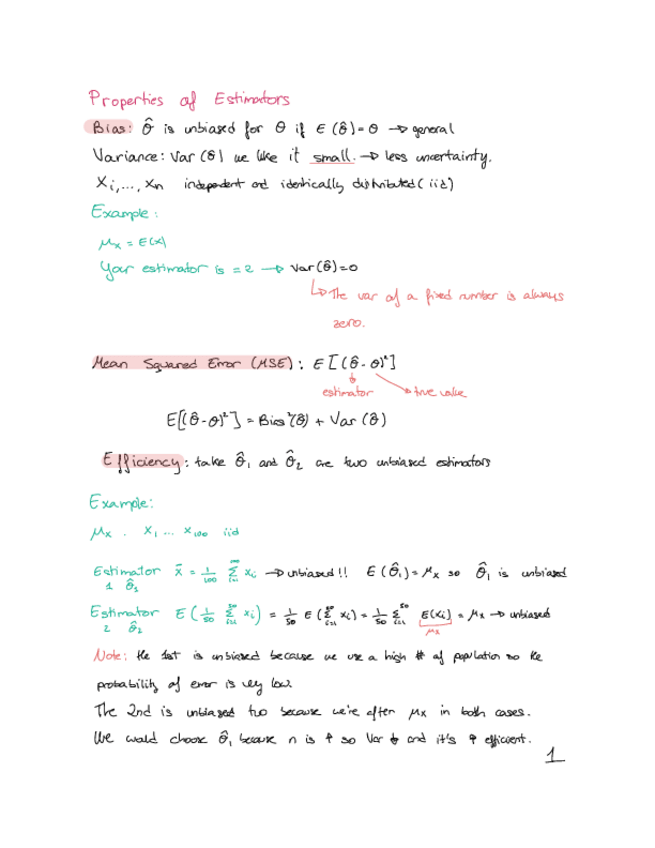 Properties of Estimators
Bias: θ̂ is unbiased for θ if E(θ̂)=θ → general
Variance: Var(θ̂) we like it small. → less uncertainty.
Xi,..., Xn independent and identically distributed (iid)
Example:
μx = E(x)
Your estimator is = 2 → Var(θ̂)=0
↳ The var of a fixed number is always
zero.
Mean Squared Error (MSE): E[(θ̂-θ)²]
estimator true value
E[(θ̂-θ)²] = Bias²(θ̂) + Var(θ̂)
Efficiency: take θ̂₁ and θ̂₂ are two unbiased estimators
Example:
μx . X₁ ... X₁₀₀ iid
Estimator x̄ = 1/100 Σ xi → unbiased!! E(θ̂₁) = μx so θ̂₁ is unbiased
1 θ̂₁
Estimator E(1/50 Σ⁵⁰ᵢ₌₁ xi) = 1/50 E(Σ⁵⁰ᵢ₌₁ xi) = 1/50 Σ⁵⁰ᵢ₌₁ E(xi) = μx → unbiased
2 θ̂₂ μx
Note: the 1st is unbiased because we use a high # of population so the
probability of error is very low.
The 2nd is unbiased too because we're after μx in both cases.
We would choose θ̂₁ because n is ↑ so Var ↓ and it's ↑ efficient.
1